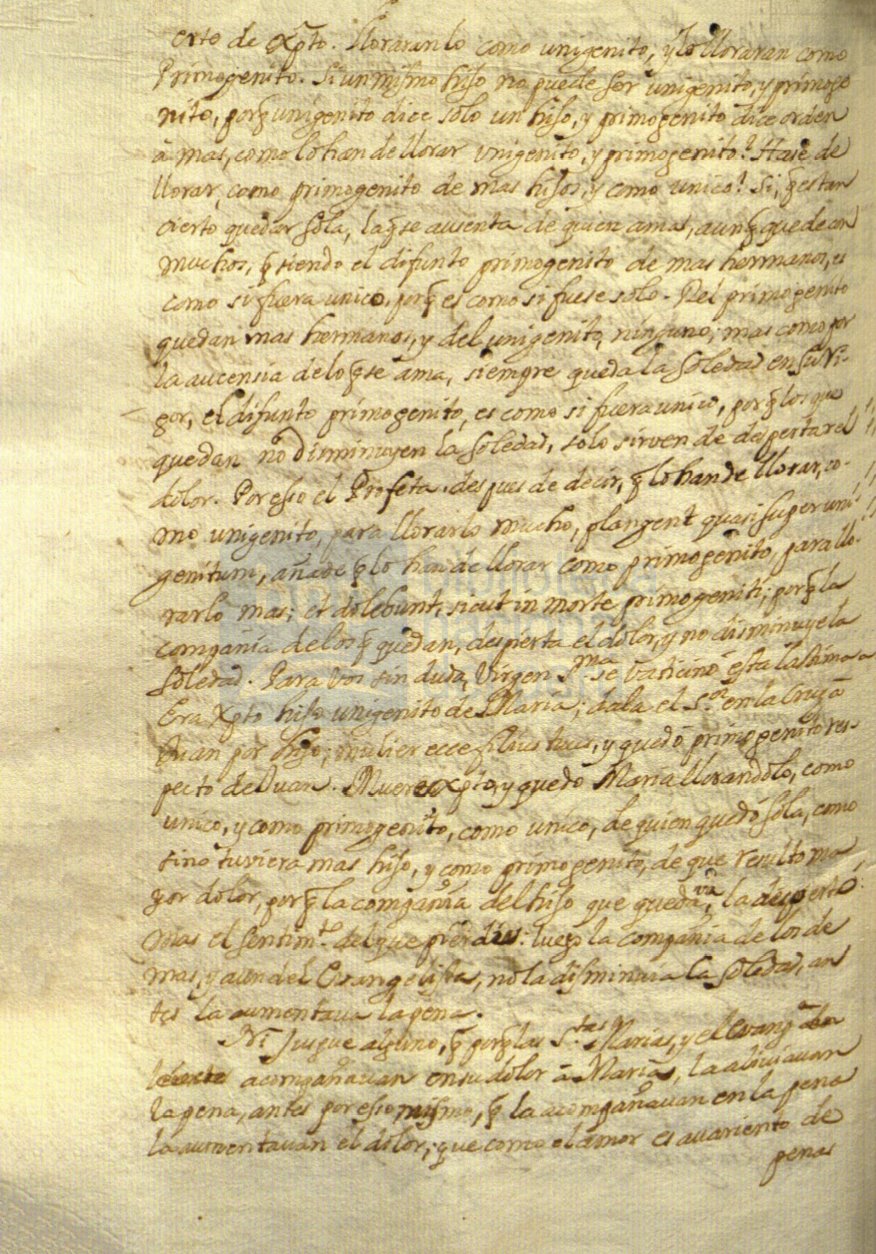 erto de Xpto. lloraranlo como unigenito, y lo lloraran como
Primogenito. Si un mismo hijo no puede ser unigenito, y primoge
nito, porq̃ unigenito dice solo un hijo, y primogenito dice orden
â mas, como lo han de llorar unigenito, y primogenito? Hase de
llorar, como primogenito de mas hijos, y como unico? Si, q̃ es tan
cierto quedar sola, la q̃ se ausenta de quien ama, aunq̃ quede con
muchos, q̃ siendo el difunto primogenito de mas hermanos, es
como si fuera unico, porq̃ es como si fuese solo. Del primogenito
quedan mas hermanos, y del unigenito, ninguno; mas como por
la aucensia de lo q̃ se ama, siempre queda la soledad en su vi-
gor, el difunto primogenito, es como si fuera unico, porq̃ los que
quedan no disminuyen la soledad, solo sirven de despertar el
dolor. Por esso el Profeta, despues de decir, q̃ lo han de llorar, co-
mo unigenito, para llorarlo mucho, plangent quasi super uni-
genitum, añade q̃ lo han de llorar como primogenito, para llo-
rarlo mas; et dolebunt, sicut in morte primogeniti; porq̃ la
compañia de los q̃ quedan, despierta el dolor, y no disminuye la
soledad. Para vos sin duda, Virgen Sma se vaticinò esta lastima
Era Xpto hijo unigenito de Maria; dala el Sr en la Cruz â
Juan por hijo; mulier ecce filius tuus, y quedó primogenito res-
pecto de Juan. Muere Xpto, y quedo Maria llorandolo, como
unico, y como primogenito, como unico, de quien quedó sola, como
sino tuviera mas hijo, y como primogenito, de que resulto ma
yor dolor, porq̃ la compañia del hijo que quedava, la desperto
mas el sentimto del que perdiò: luego la compañia de los de
mas, y aun del Evangelista, no la disminuia la soledad, an
tes la aumentava la pena.
Ni jusgue alguno, q̃ porq̃ las Stas Marias, y el Evangta
acompañavan en su dolor â Maria, la aliviavan
la pena, antes por esso mismo, q̃ la acompañavan en la pena
la aumentavan el dolor; que como el amor es avariento de
penas